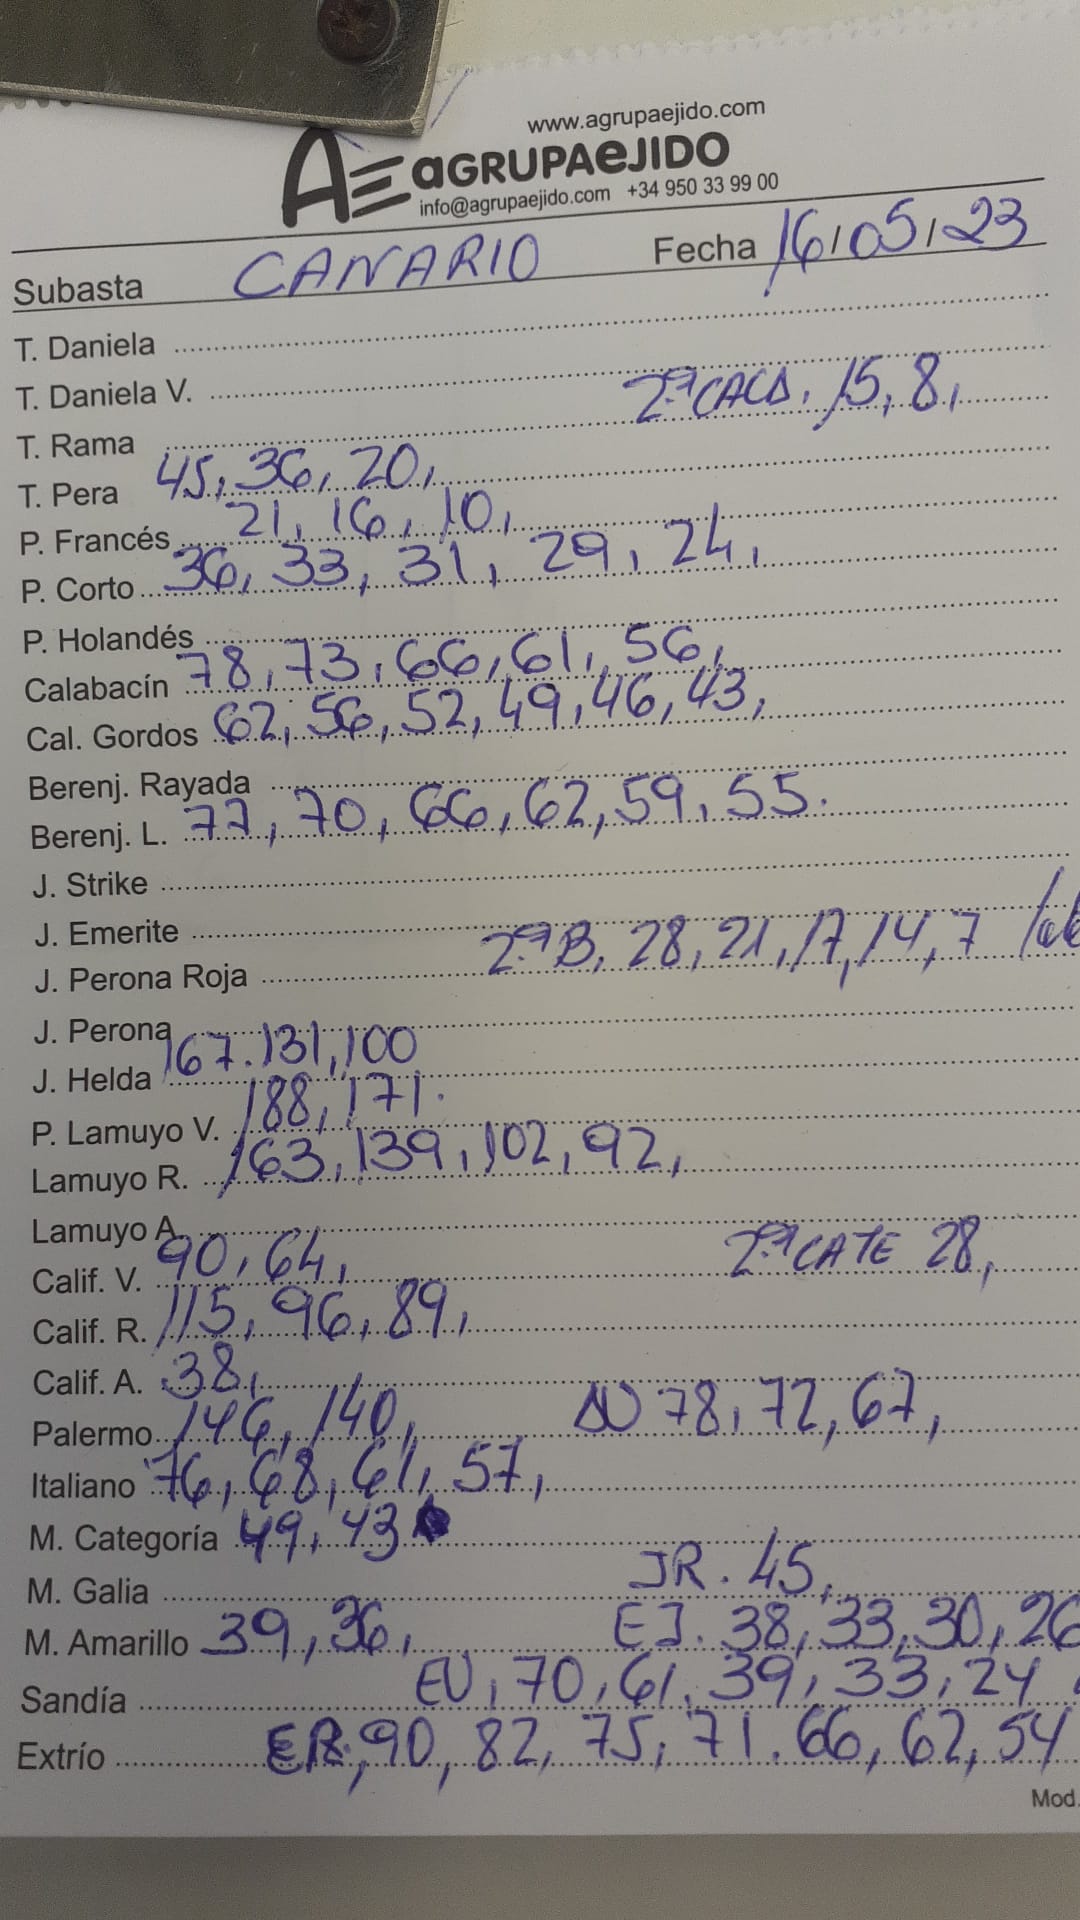 www.agrupaejido.com
AGRUPAEJIDO
info@agrupaejido.com +34 950 33 99 00
Subasta CANARIO Fecha 16/05/23
T. Daniela
T. Daniela V.
T. Rama 2ª CACD. 15, 8,
T. Pera 45, 36, 20,
P. Francés 21, 16, 10,
P. Corto 36, 33, 31, 29, 24,
P. Holandés
Calabacín 78, 73, 66, 61, 56,
Cal. Gordos 62, 56, 52, 49, 46, 43,
Berenj. Rayada
Berenj. L. 77, 70, 66, 62, 59, 55.
J. Strike
J. Emerite
J. Perona Roja 2ª B, 28, 21, 17, 14, 7
J. Perona
J. Helda 167. 131, 100
P. Lamuyo V. 188, 171.
Lamuyo R. 163, 139, 102, 92,
Lamuyo A.
Calif. V. 90, 64, 2ª CATE 28,
Calif. R. 115, 96, 89,
Calif. A. 38,
Palermo 146, 140, 78, 72, 67,
Italiano 76, 68, 61, 57,
M. Categoría 49, 43
M. Galia JR. 45,
M. Amarillo 39, 36, EJ. 38, 33, 30, 26
Sandía EU, 70, 61, 39, 33, 24
Extrío ER, 90, 82, 75, 71. 66, 62, 54
Mod.